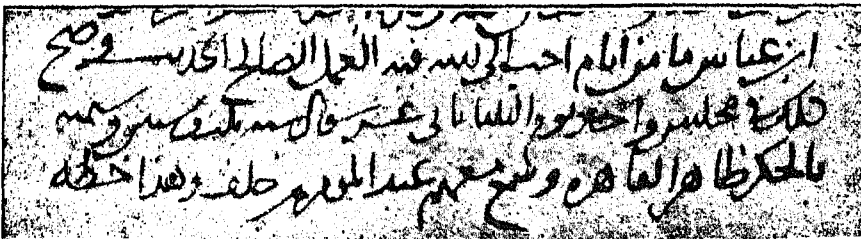 ابن عباس ما من ايام احب الى الله فيه العمل الصالح الحديث وصح
ذلك في مجلس واحد يوم الثلثا ثاني عشر سنة وستين وستمية
بالحكر ظاهر القاهرة وسمع معهم عبد المومن بن خلف وهذا خطه